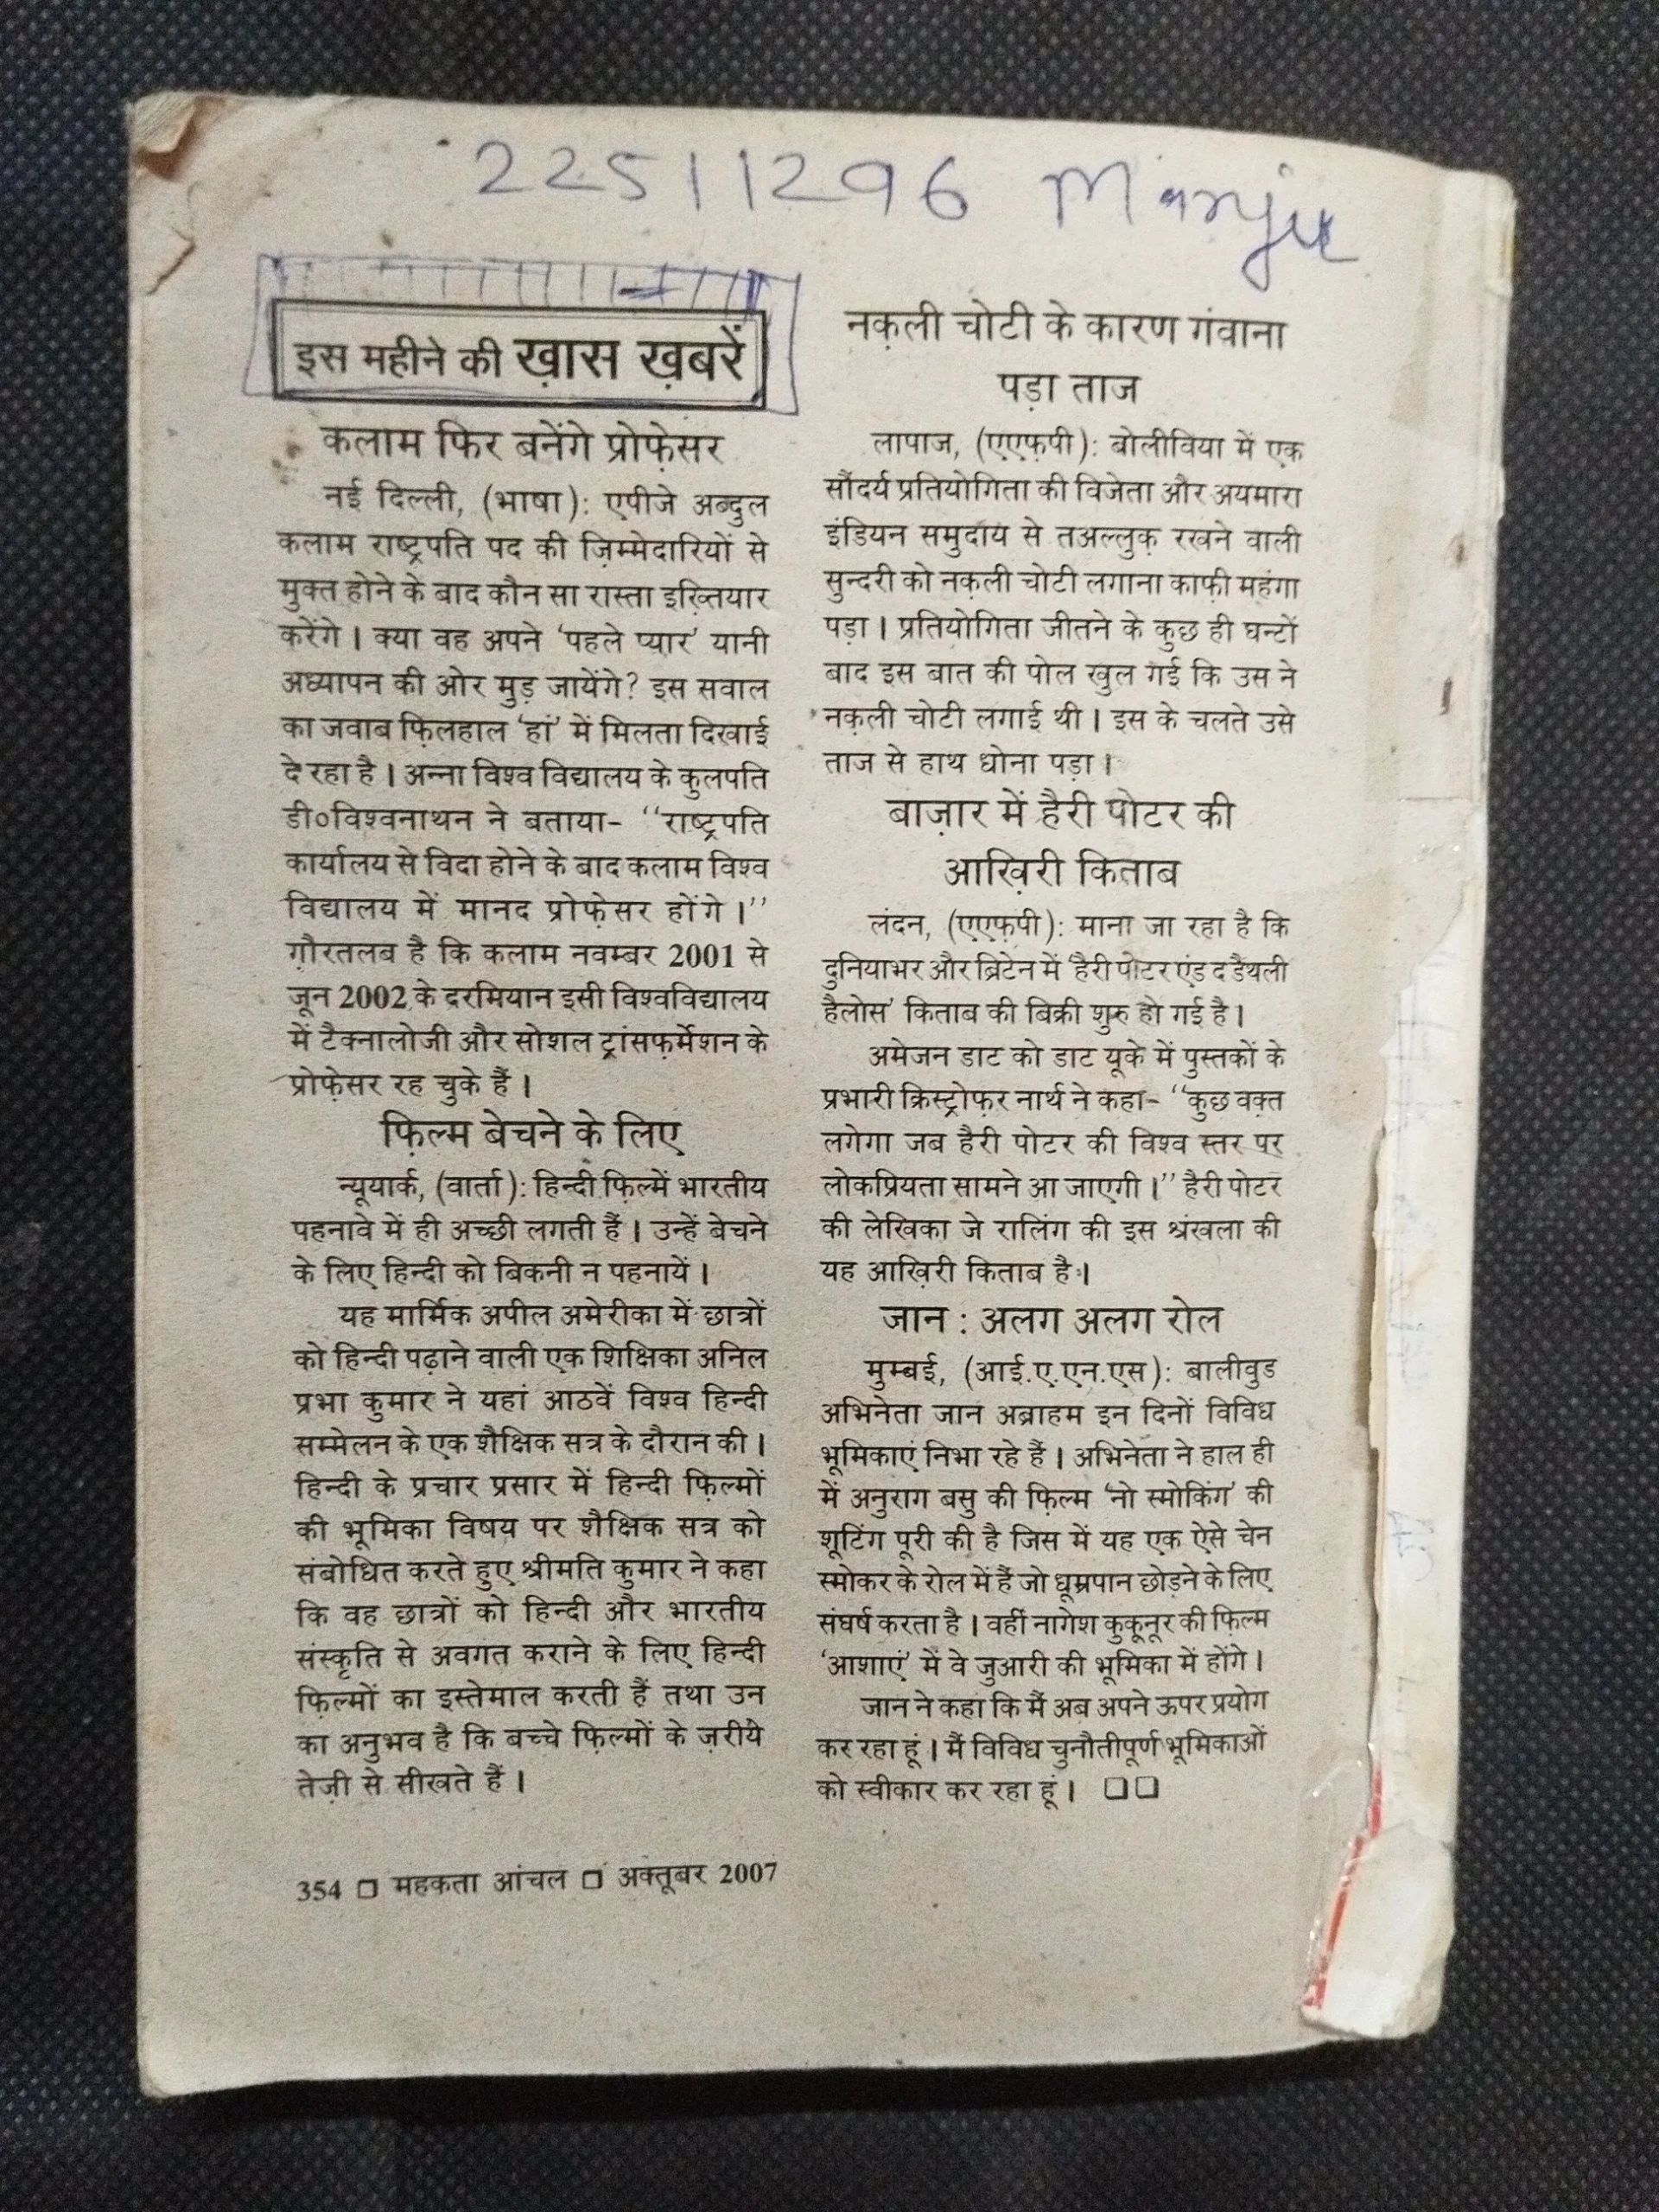 22511296 Manju
इस महीने की ख़ास ख़बरें
कलाम फिर बनेंगे प्रोफ़ेसर
नई दिल्ली, (भाषा): एपीजे अब्दुल
कलाम राष्ट्रपति पद की ज़िम्मेदारियों से
मुक्त होने के बाद कौन सा रास्ता इख़्तियार
करेंगे। क्या वह अपने ‘पहले प्यार’ यानी
अध्यापन की ओर मुड़ जायेंगे? इस सवाल
का जवाब फ़िलहाल ‘हां’ में मिलता दिखाई
दे रहा है। अन्ना विश्व विद्यालय के कुलपति
डी०विश्वनाथन ने बताया- ‘‘राष्ट्रपति
कार्यालय से विदा होने के बाद कलाम विश्व
विद्यालय में मानद प्रोफ़ेसर होंगे।’’
ग़ौरतलब है कि कलाम नवम्बर 2001 से
जून 2002 के दरमियान इसी विश्वविद्यालय
में टैक्नालोजी और सोशल ट्रांसफ़र्मेशन के
प्रोफ़ेसर रह चुके हैं।
फ़िल्म बेचने के लिए
न्यूयार्क, (वार्ता): हिन्दी फ़िल्में भारतीय
पहनावे में ही अच्छी लगती हैं। उन्हें बेचने
के लिए हिन्दी को बिकनी न पहनायें।
यह मार्मिक अपील अमेरीका में छात्रों
को हिन्दी पढ़ाने वाली एक शिक्षिका अनिल
प्रभा कुमार ने यहां आठवें विश्व हिन्दी
सम्मेलन के एक शैक्षिक सत्र के दौरान की।
हिन्दी के प्रचार प्रसार में हिन्दी फ़िल्मों
की भूमिका विषय पर शैक्षिक सत्र को
संबोधित करते हुए श्रीमति कुमार ने कहा
कि वह छात्रों को हिन्दी और भारतीय
संस्कृति से अवगत कराने के लिए हिन्दी
फ़िल्मों का इस्तेमाल करती हैं तथा उन
का अनुभव है कि बच्चे फ़िल्मों के ज़रीये
तेज़ी से सीखते हैं।
नक़ली चोटी के कारण गंवाना
पड़ा ताज
लापाज, (एएफ़पी): बोलीविया में एक
सौंदर्य प्रतियोगिता की विजेता और अयमारा
इंडियन समुदाय से तअल्लुक़ रखने वाली
सुन्दरी को नक़ली चोटी लगाना काफ़ी महंगा
पड़ा। प्रतियोगिता जीतने के कुछ ही घन्टों
बाद इस बात की पोल खुल गई कि उस ने
नक़ली चोटी लगाई थी। इस के चलते उसे
ताज से हाथ धोना पड़ा।
बाज़ार में हैरी पोटर की
आख़िरी किताब
लंदन, (एएफ़पी): माना जा रहा है कि
दुनियाभर और ब्रिटेन में ‘हैरी पोटर एंड द डैथली
हैलोस’ किताब की बिक्री शुरु हो गई है।
अमेजन डाट को डाट यूके में पुस्तकों के
प्रभारी क्रिस्ट्रोफ़र नार्थ ने कहा- ‘‘कुछ वक़्त
लगेगा जब हैरी पोटर की विश्व स्तर पर
लोकप्रियता सामने आ जाएगी।’’ हैरी पोटर
की लेखिका जे रालिंग की इस श्रंखला की
यह आख़िरी किताब है।
जान : अलग अलग रोल
मुम्बई, (आई.ए.एन.एस): बालीवुड
अभिनेता जान अब्राहम इन दिनों विविध
भूमिकाएं निभा रहे हैं। अभिनेता ने हाल ही
में अनुराग बसु की फ़िल्म ‘नो स्मोकिंग’ की
शूटिंग पूरी की है जिस में यह एक ऐसे चेन
स्मोकर के रोल में हैं जो धूम्रपान छोड़ने के लिए
संघर्ष करता है। वहीं नागेश कुकूनूर की फ़िल्म
‘आशाएं’ में वे जुआरी की भूमिका में होंगे।
जान ने कहा कि मैं अब अपने ऊपर प्रयोग
कर रहा हूं। मैं विविध चुनौतीपूर्ण भूमिकाओं
को स्वीकार कर रहा हूं। □□
354 □ महकता आंचल □ अक्तूबर 2007